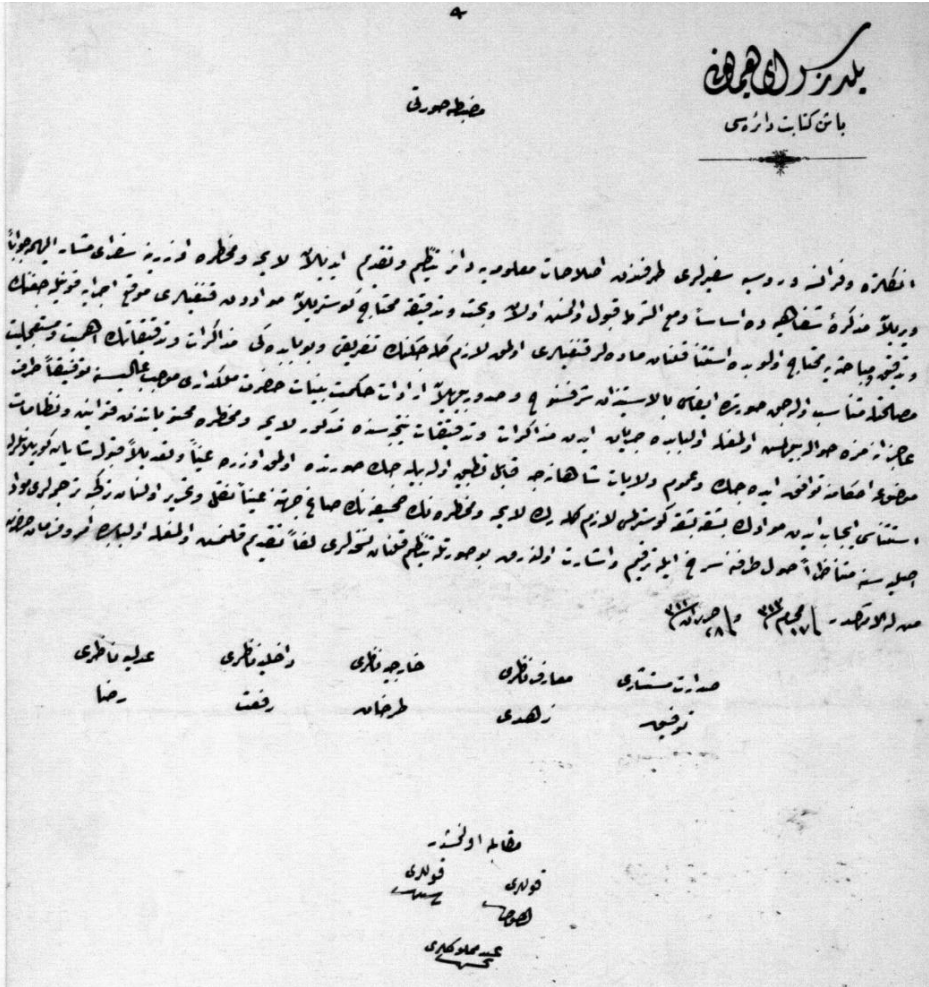 يلديز سراى همايونى
باش كتابت دائره سى
مضبطه صورتى
انكلتره وفرانسه وروسيه سفيرلرى طرفندن اصلاحات معلوميه دائر تنظيم وتقديم ايديلان لايحه ومخطره اوزرينه سفراى مشار اليهمه جواباً
ويريلان مذكرۀ شفاهيه ده اساساً ومع الشرط قبول اولنمش اولان وبحث وتدقيقه محتاج كوستريلان مواددن قنغيلرى موقع اجرايه قونيله جغنك
وتدقيق ومباحثه يه محتاج اولوب ده استثنا قلنان ماده لر قنغيلرى اولمق لازم كله جكنك تفريقى وبوبابده كى مذاكرات وتدقيقاتك اهميت ومستعجليت
مصلحتله متناسب اوله جق صورتده ايفاسى بالاستيذان شرفسنوح وصدور بيوريلان ارادات حكمت بينات حضرت ملكدارى موجب عاليسنه توفيقاً طرف
عاجزانه مزه حواله بيورلمش اولمغله اولبابده جريان ايدن مذاكرات وتدقيقات نتيجه سنده مذكور لايحه ومخطره محتوياتندن قوانين ونظامات
موضوعه احكامنه توافق ايده جك وعموم ولايات شاهانه جه قابل تطبيق اوله بيله جك صورتده اولمق اوزره عيناً وتعديلاً قبوله شايان كوريلانلرله
استثناسى ايجاب ايدن موادك بشقه بشقه كوسترلمسى لازم كله رك لايحه ومخطره نك صحيفه نك صاغ جهتنه عيناً نقل وتحرير اولنان تركجه ترجمه لرى مواد
اصليه سنه متناظراً صول طرفنه سرخ ايله ترقيم واشارت اولنه رق بو صورتله تنظيم قلنان نسخه لرى لفاً تقديم قلنمش اولمغله اولبابده امر وفرمان حضرت
من له الامركدر ١٧ محرم ٣١٣ و ٢٨ حزيران ٣١١
صدارت مستشارى معارف ناظرى خارجيه ناظرى داخليه ناظرى عدليه ناظرى
توفيق زهدى طرخان رفعت رضا
مقابله اولنمشدر
قوللرى قوللرى
عبد مملوكلرى